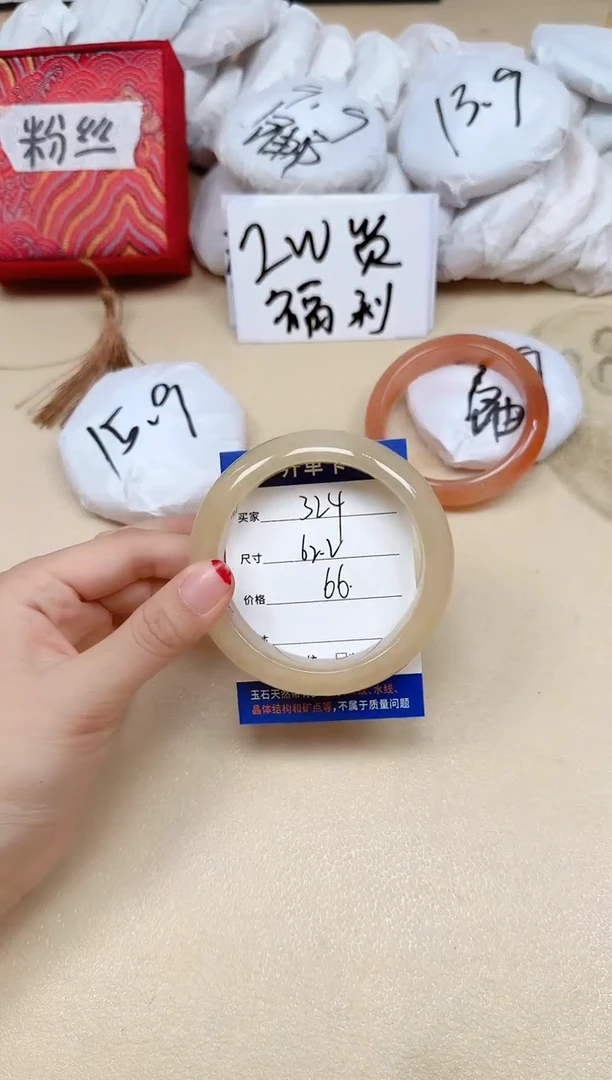 粉丝
13.9
2W赞
福利
15.9
开单卡
买家 324
尺寸 62.2
价格 66.
玉石天然带有
水线、
晶体结构和矿点等，不属于质量问题